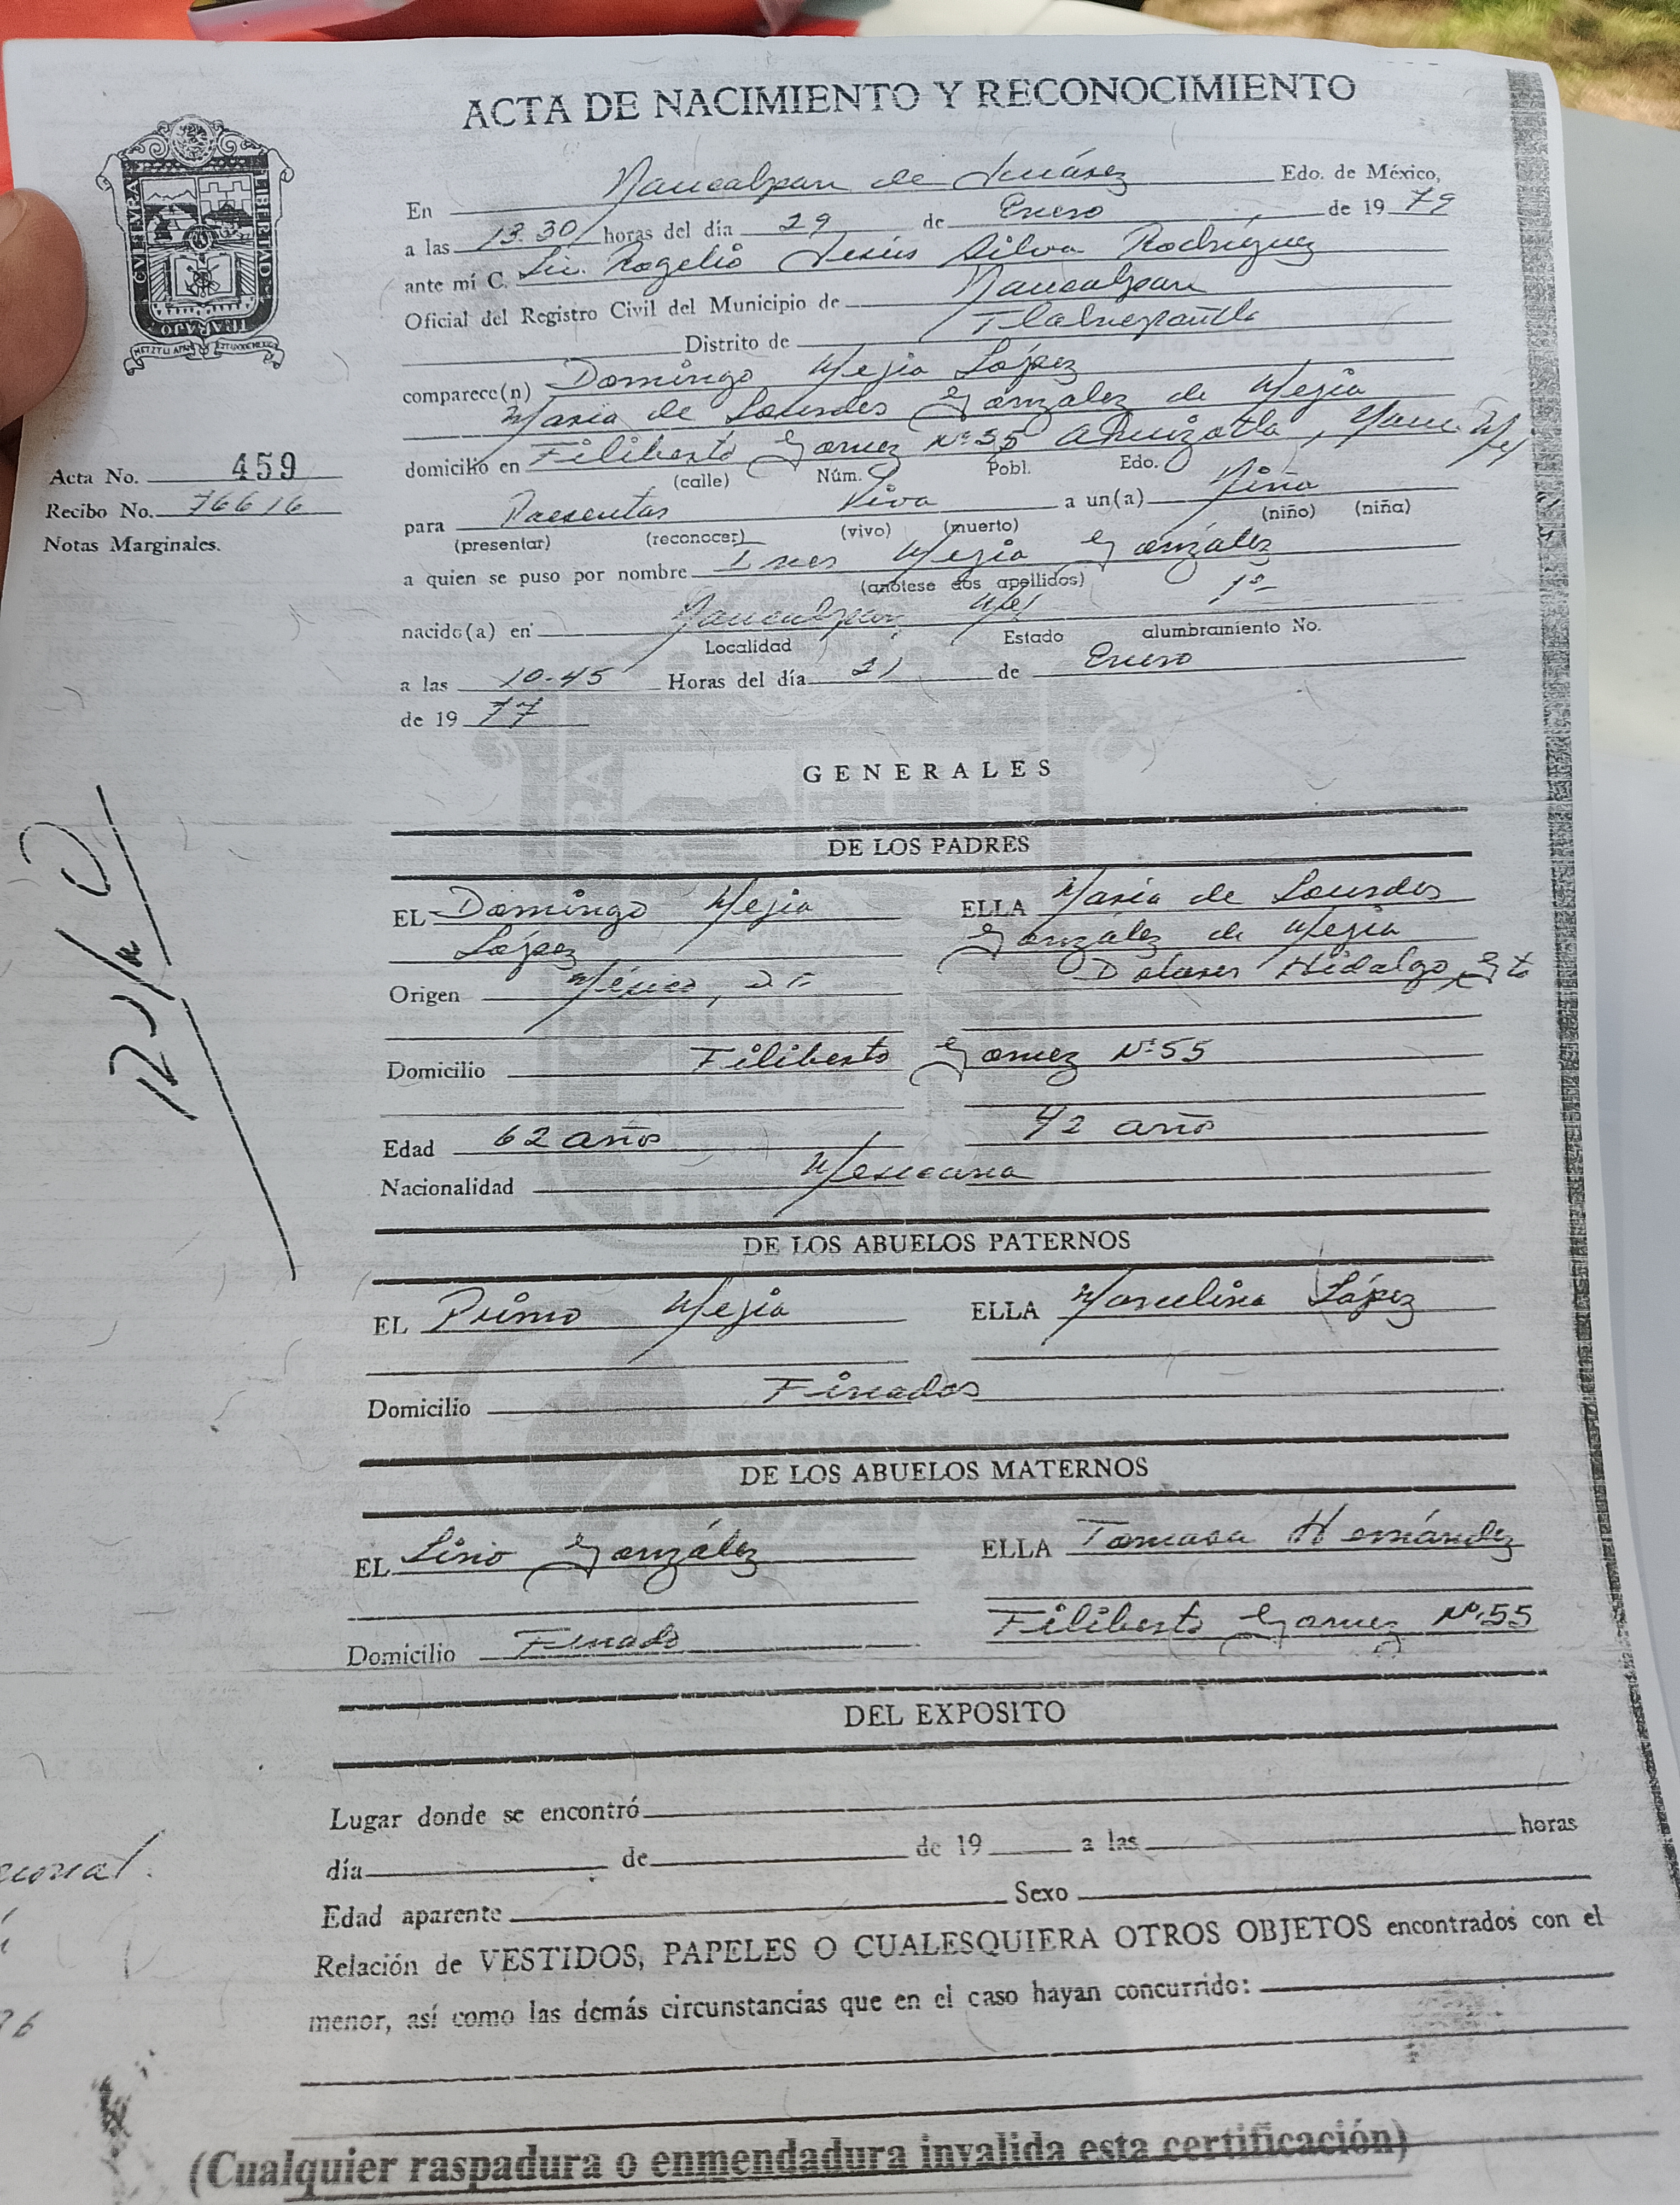 ACTA DE NACIMIENTO Y RECONOCIMIENTO
En Naucalpan de Juárez Edo. de México,
a las 13.30 horas del día 29 de Enero de 1979
ante mí C. Lic. Rogelio Jesús Silva Rodríguez
Oficial del Registro Civil del Municipio de Naucalpan
Distrito de Tlalnepantla
comparece(n) Domingo Mejia López
María de Lourdes González de Mejia
domicilio en Filiberto Gomez Nº 55 Ahuizotla, Nauc. Mex
(calle) Núm. Pobl. Edo.
para Presentar Viva a un(a) Niña
(presentar) (reconocer) (vivo) (muerto) (niño) (niña)
a quien se puso por nombre Ines Mejia González
(anótese dos apellidos)
nacido(a) en Naucalpan, Mex 1º
Localidad Estado alumbramiento No.
a las 10.45 Horas del día 21 de Enero
de 1977
CVLTVRA
LIBERTAD
TRABAJO
Acta No. 459
Recibo No. 76616
Notas Marginales.
GENERALES
DE LOS PADRES
EL Domingo Mejia ELLA María de Lourdes
López González de Mejia
Origen México, D.F. Dolores Hidalgo, Gto
Domicilio Filiberto Gomez Nº 55
Edad 62 años 42 años
Nacionalidad Mexicana
DE LOS ABUELOS PATERNOS
EL Primo Mejia ELLA Marcelina López
Domicilio Finados
DE LOS ABUELOS MATERNOS
EL Lino González ELLA Tomasa Hernández
Domicilio Finado Filiberto Gomez Nº 55
DEL EXPOSITO
Lugar donde se encontró
día de de 19 a las horas
Edad aparente Sexo
Relación de VESTIDOS, PAPELES O CUALESQUIERA OTROS OBJETOS encontrados con el
menor, así como las demás circunstancias que en el caso hayan concurrido:
(Cualquier raspadura o enmendadura invalida esta certificación)